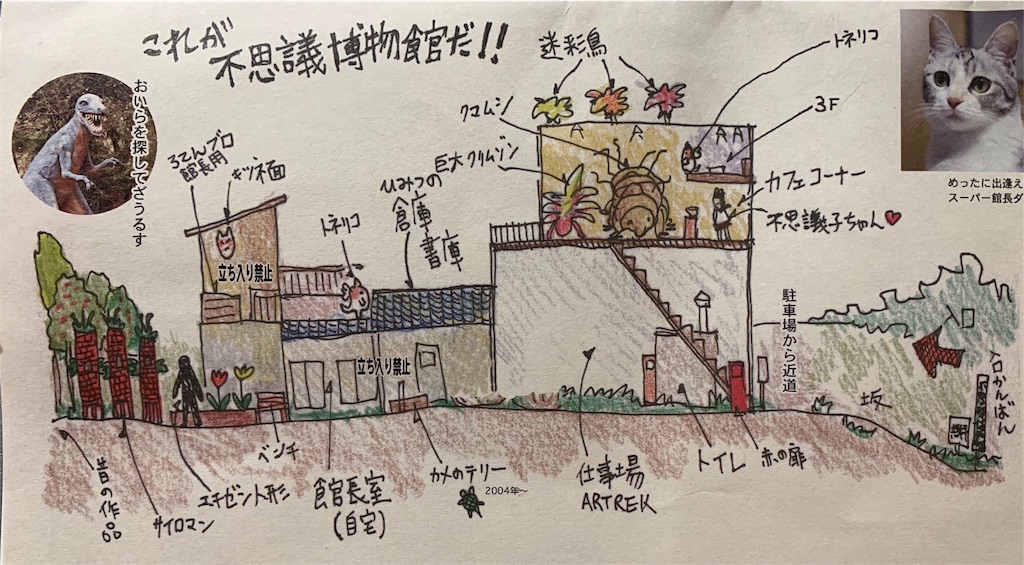 これが
不思議博物館だ!!
おいらを探してざうるす
ろてんブロ
館長用
キツネ面
立ち入り禁止
トネリコ
ひみつの
倉庫
書庫
クマムシ
巨大クリムゾン
迷彩鳥
トネリコ
3F
カフェコーナー
不思議子ちゃん♥
めったに出逢え
スーパー館長ダ
立ち入り禁止
駐車場から近道
入口かんばん
坂
昔の作品
サイロマン
エチゼン人形
ベンチ
館長室
(自宅)
カメのテリー
2004年〜
仕事場
ARTREK
トイレ
赤の扉